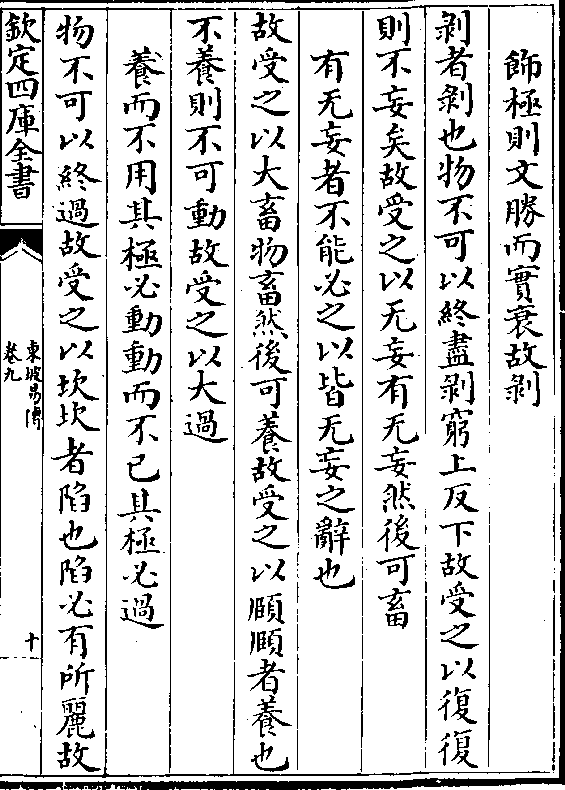 飾極則文勝而實衰故剥
剥者剥也物不可以終盡剥窮上反下故受之以復復
則不妄矣故受之以无妄有无妄然後可畜
有无妄者不能必之以皆无妄之辭也
故受之以大畜物畜然後可養故受之以頤頤者養也
不養則不可動故受之以大過
養而不用其極必動動而不已其極必過
物不可以終過故受之以坎坎者陷也陷必有所麗故
欽定四庫全書
東坡易傳
卷九
十